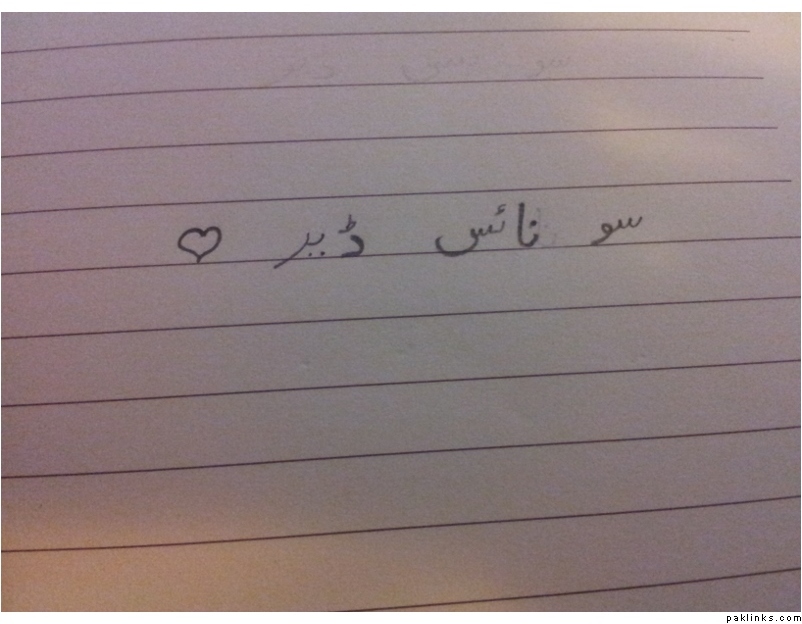 سو نائس ڈیر ♡
paklinks.com